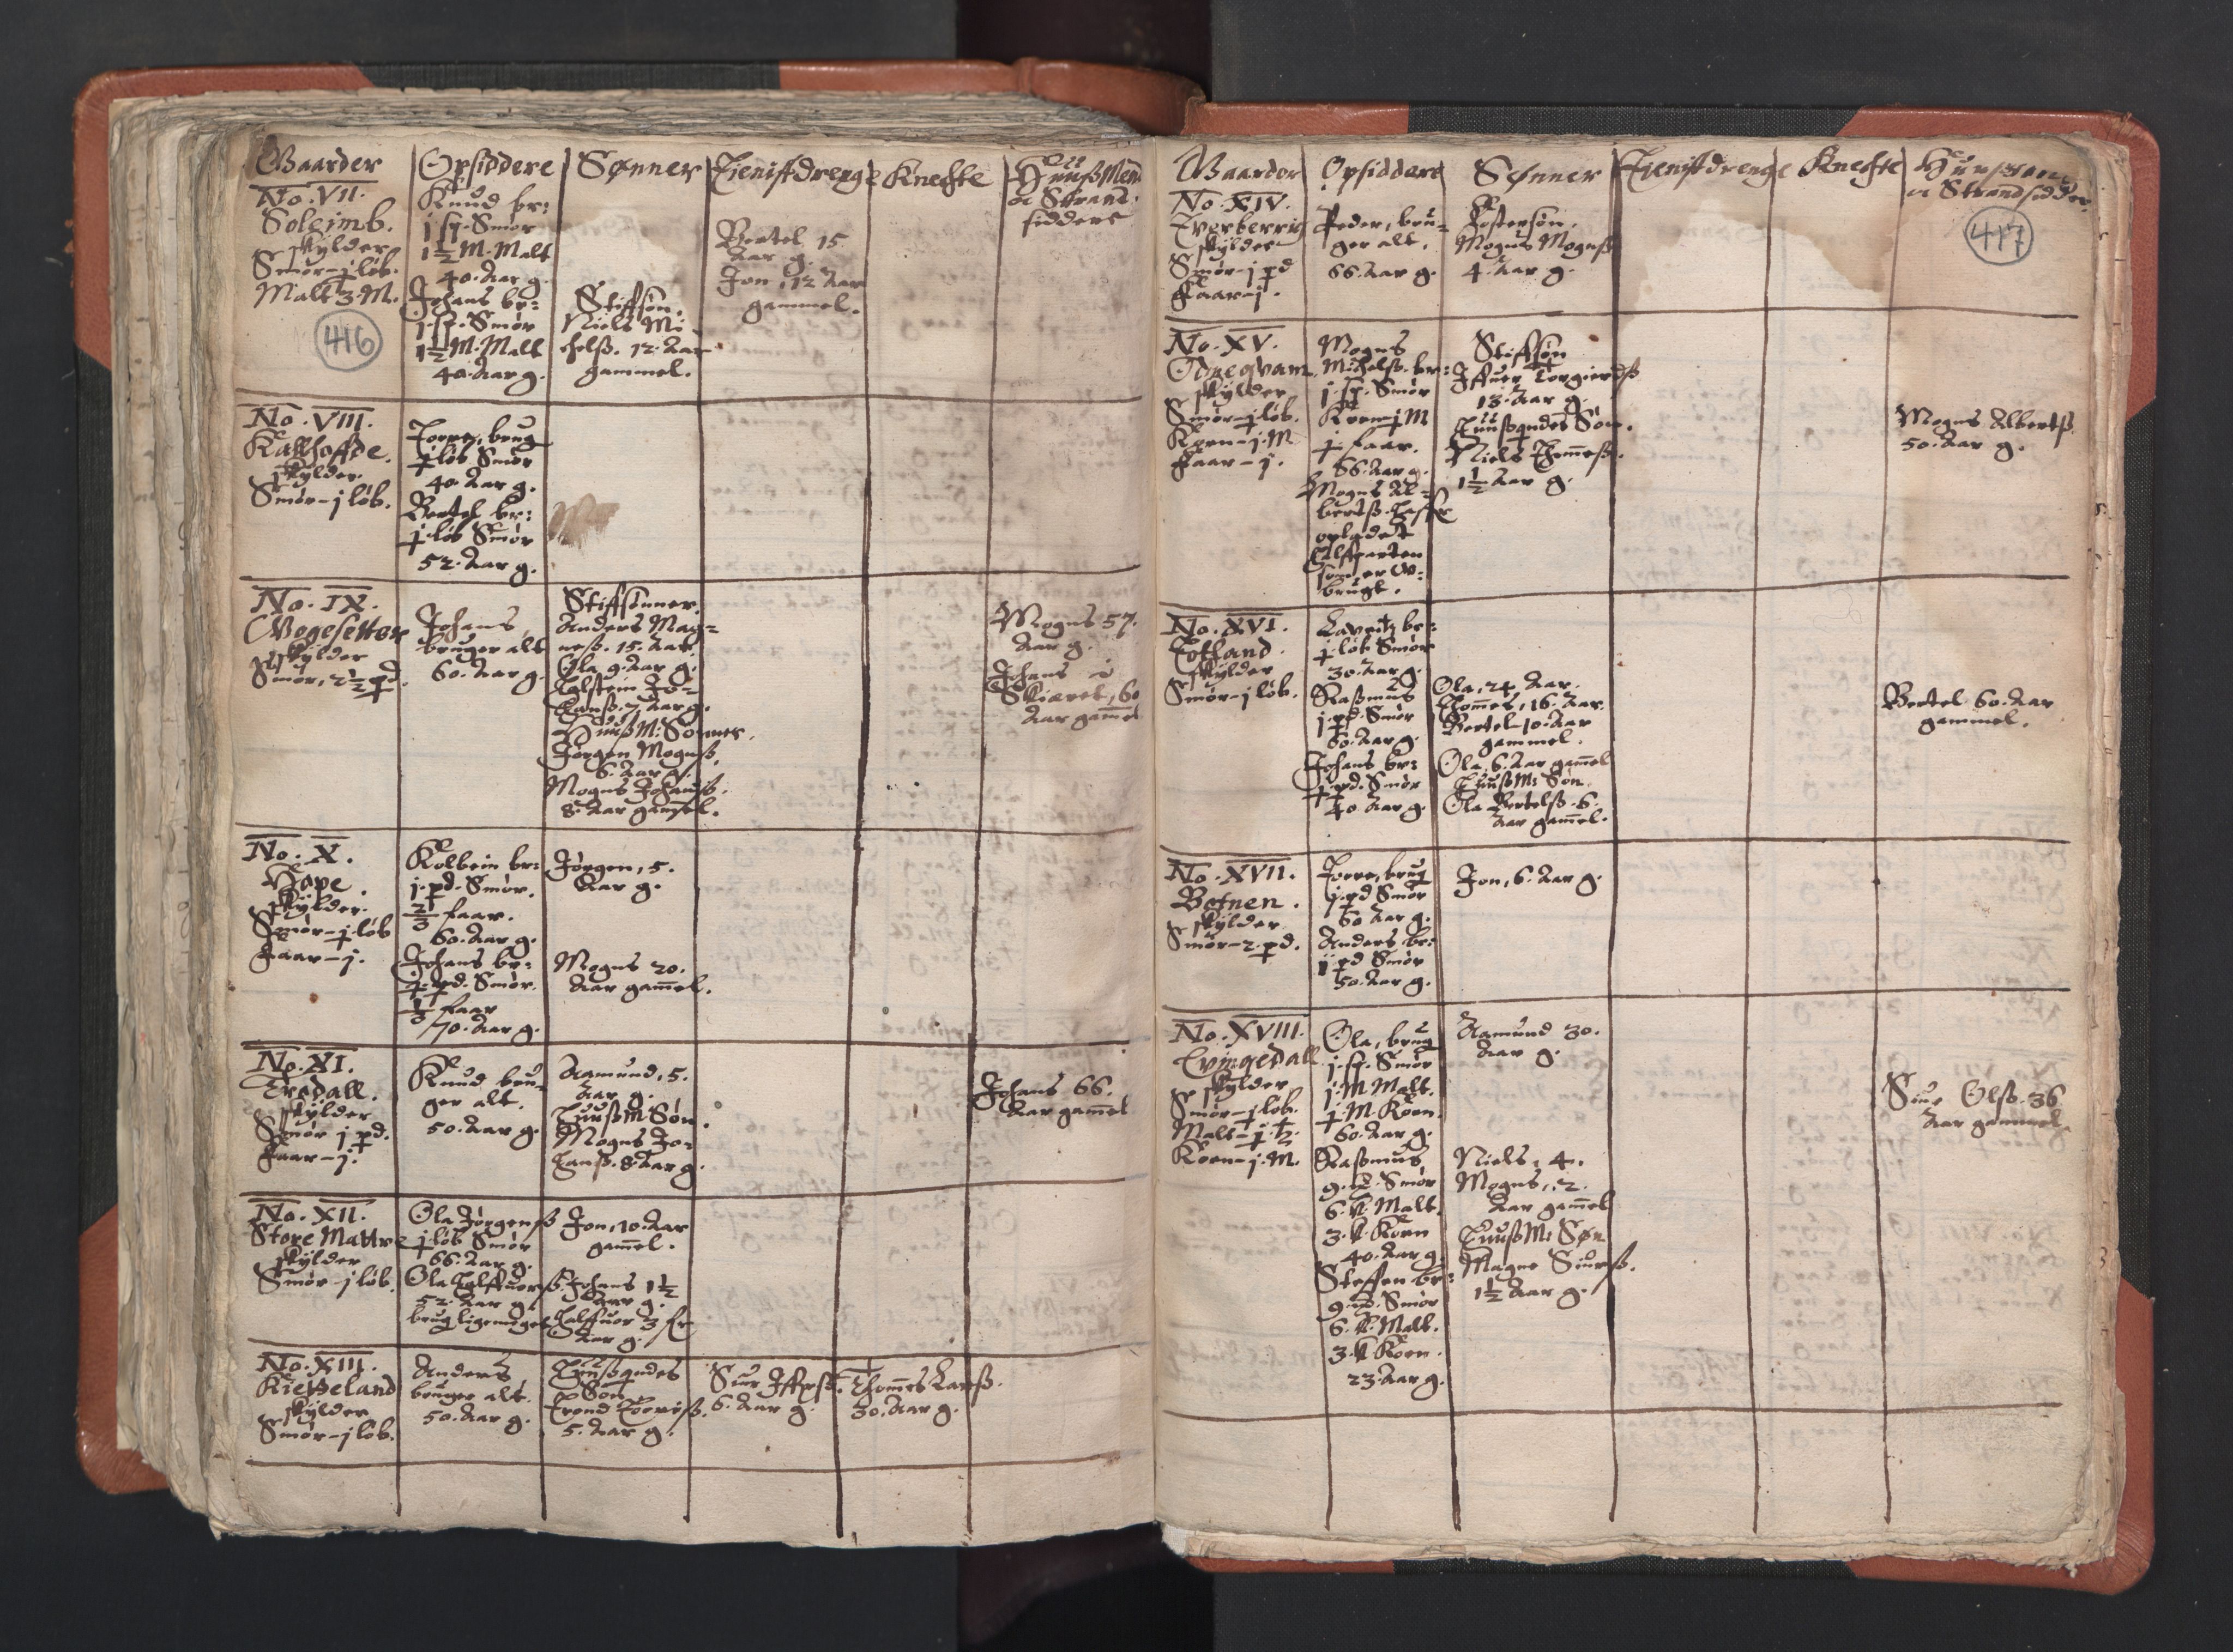 Gaarder
Opsiddere
Sønner
Tienistdrenge
Knechte
Huußmend
oc Strand
siddere
No. VII.
Soleimb.
skylder
Smør-j løb.
Malt 3 M.
416
Knud br:
j sp. Smør
1½ M. Malt
40. Aar g.
Johans br:
j. sp. Smør
1½ M. Malt
40. Aar g.
Stiffsøn.
Niels Mi-
chelß. 12. Aar
gammel.
Bertel 15
Aar g.
Jon, 12 Aar
gammel.
No. VIII.
skylder.
Smør-j løb.
Torre, brug
½ løb Smør
40. Aar g.
Bertel br:
½ løb Smør
52. Aar g.
No. IX.
skylder
Smør, 2½ pd.
Johans
bruger alt
60. Aar g.
Stiffsønner.
Anders Mag-
neß. 15. Aar.
Ola 9. Aar g.
Hanß. 7. Aar g.
Huuß M: Sønner.
Jørgen Mognß.
6. Aar g.
Mogns Johanß.
8. Aar gamel.
Mogns 57.
Aar g.
Johans i
Skiæret, 60
Aar gamel
No. X.
Hope.
skylder.
Smør-j løb
Faar-j.
Kolbein br:
j. pd. Smør.
⅔ faar.
60. Aar g.
Johans br:
½ pd. Smør.
⅓ faar
70. Aar g.
Jørgen, 5.
Aar g.
Mogns 20.
Aar gamel.
No. XI.
Tredall.
skylder
Smør j pd.
Faar-j.
Knud bru-
ger alt.
50. Aar g.
Aamund, 5.
Aar g.
Huuß M Søn.
Mogns Jo-
hanß. 8. Aar g.
Johans 66.
Aar gamel
No. XII.
Store Mattre
skylder
Smør-j løb.
Ola Jørgenß
½ løb Smør
66. Aar g.
Ola Halffuorß.
52. Aar g.
brug ligemeget
Jon, 10. Aar
gamel.
Johans 1½
Aar g.
Halffuor 3
Aar g.
No. XIII.
Kießeland
skylder
Smør-j løb.
Anders
bruger alt.
50. Aar g.
Huußqndes
Søn
5. Aar g.
6. Aar g.
Thomes Larß.
30. Aar g.
Gaarder
Opsiddere
Sønner
Tienistdrenge
Knechte
Hußmend
oc Strandsidder.
417
No. XIV.
skylder
Smør-j pd
Faar-j.
Peder, bru-
ger alt.
66. Aar g.
Fostersøn.
Mogns Mognß
4. Aar g.
No. XV.
skylder
Smør-j løb.
Korn-j. M
Faar-j.
Mogns
Michelß. br:
j. sp. Smør
Korn ½ M
½ faar.
66. Aar g.
Mogns Al-
bertß. haffr
opladet
Halfparten
som er w-
brugt.
Stiffsøn
Iffuer Torgierdß
13. Aar g.
Huußqndes Søn.
Niels Thomeß.
1½ Aar g.
Mogns Albertß.
50. Aar g.
No. XVI.
Totland.
skylder
Smør-j løb.
Lavritz br:
½ løb Smør
30. Aar g.
Rasmus
j. pd. Smør
60. Aar g.
Johans br:
½ pd. Smør
40 Aar g.
Ola, 24 Aar.
Thomes, 16. Aar.
Bertel 10. Aar
gammel.
Ola, 6. Aar gamel
Huuß M: Søn.
Ola Bertelß. 6.
Aar gamel.
Bertel 60. Aar
gammel.
No. XVII.
Botnen.
skylder
Smør-2. pd.
Torre, brug
j. pd Smør
60 Aar g.
Anders br:
j. pd Smør
50. Aar g.
Jon, 6. Aar g.
No. XVIII.
Evingedall
skylder
Smør-j løb.
Malt-j ½.
Korn-j. M.
Ola, brug
j. sp. Smør
j. M Malt.
½. M. Korn
60. Aar g.
Rasmus
9. Smør
6. Malt.
3. Korn
40. Aar g.
Steffen br:
9. Smør
6. Malt.
3. Korn.
23. Aar g.
Aamund 30.
Aar g.
Niels, 4.
Mogns, 2.
Aar gamel
Huuß M: Søn
Magne Siurß.
1½ Aar g.
Siur Olß. 36
Aar gammel.